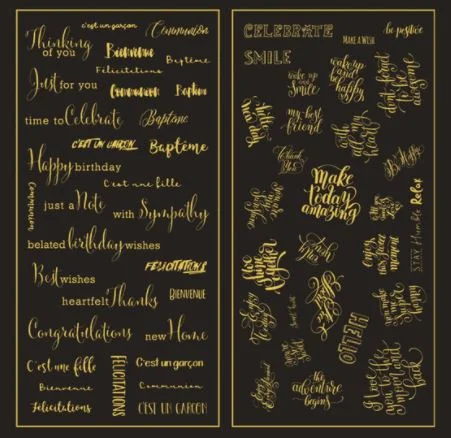 c'est un garçon
Communion
Thinking
of you
Bienvenue
Baptême
Félicitations
Just for you
Communion
Baptême
time to Celebrate
Baptême
C'EST UN GARÇON
Baptême
Happy birthday
C'est une fille
Communion
just a Note
with Sympathy
belated birthday wishes
FELICITATIONS
Best wishes
BIENVENUE
heartfelt Thanks
Congratulations
new Home
C'est une fille
FELICITATIONS
C'est un garçon
Bienvenue
Communion
Félicitations
C'EST UN GARCON
CELEBRATE
MAKE A WISH
be positive
SMILE
wake up
and be
happy
don't forget
to be
awesome
wake up
and
smile
my best
friend
with all
my
heart
thank
you
make
today
amazing
Relax
STAY Humble
let's
shine
together
enjoy
this sweet
moment
Enjoy
today
you
make me
super
happy
HELLO
the
adventure
begins
I love
you to the
moon and
back